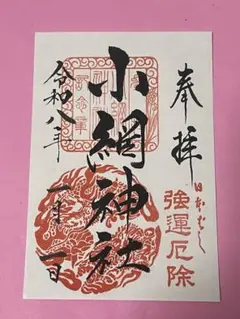 奉拝
日本ばし
強運厄除
小網神社
令和八年
一月一日